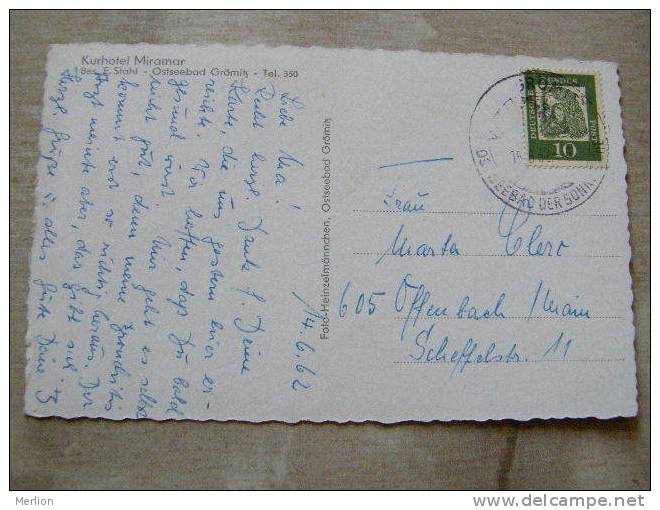 Kurhotel Miramar
Bes. E. Stahl - Ostseebad Grömitz - Tel. 350
14.6.62
Liebe Ma!
Recht herzl. Dank f. Deine
Karte, die uns gestern hier er-
reichte. Wir hoffen, daß Du bald
gesund wirst. Mir geht es selbst
nicht gut, denn meine Bronchitis
kommt erst so richtig heraus. Der
Arzt meinte aber, das gibt sich
Herzl. Grüße u. alles Gute Deine
Foto-Heinzelmännchen, Ostseebad Grömitz
DEUTSCHE BUNDESPOST
10
OSTSEEBAD DER SONN
Frau
Marta Clerc
605 Offenbach / Main
Scheffelstr. 11
Merlion
www.delcampe.net